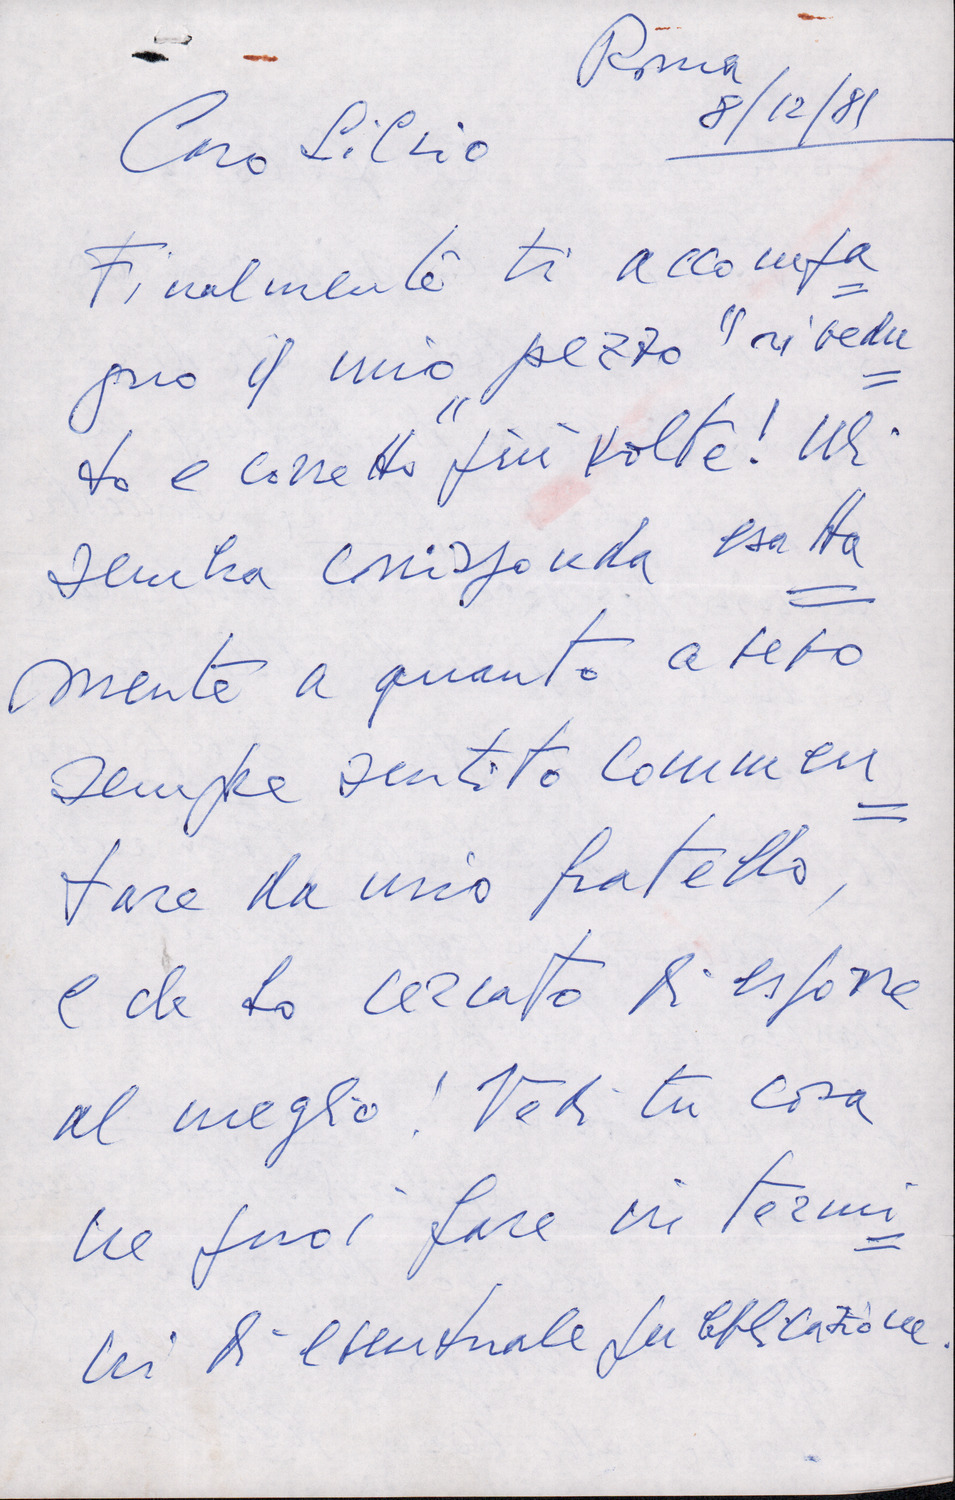 Roma
8/12/81
Caro Silvio
Finalmente ti accompa=
gno il mio pezzo "rivedu=
to e corretto" più volte! Mi
sembra corrisponda esatta=
mente a quanto avevo
sempre sentito commen=
tare da mio fratello,
e che ho cercato di esporre
al meglio! Vedi tu cosa
ne puoi fare in termi=
ni di eventuale pubblicazione.